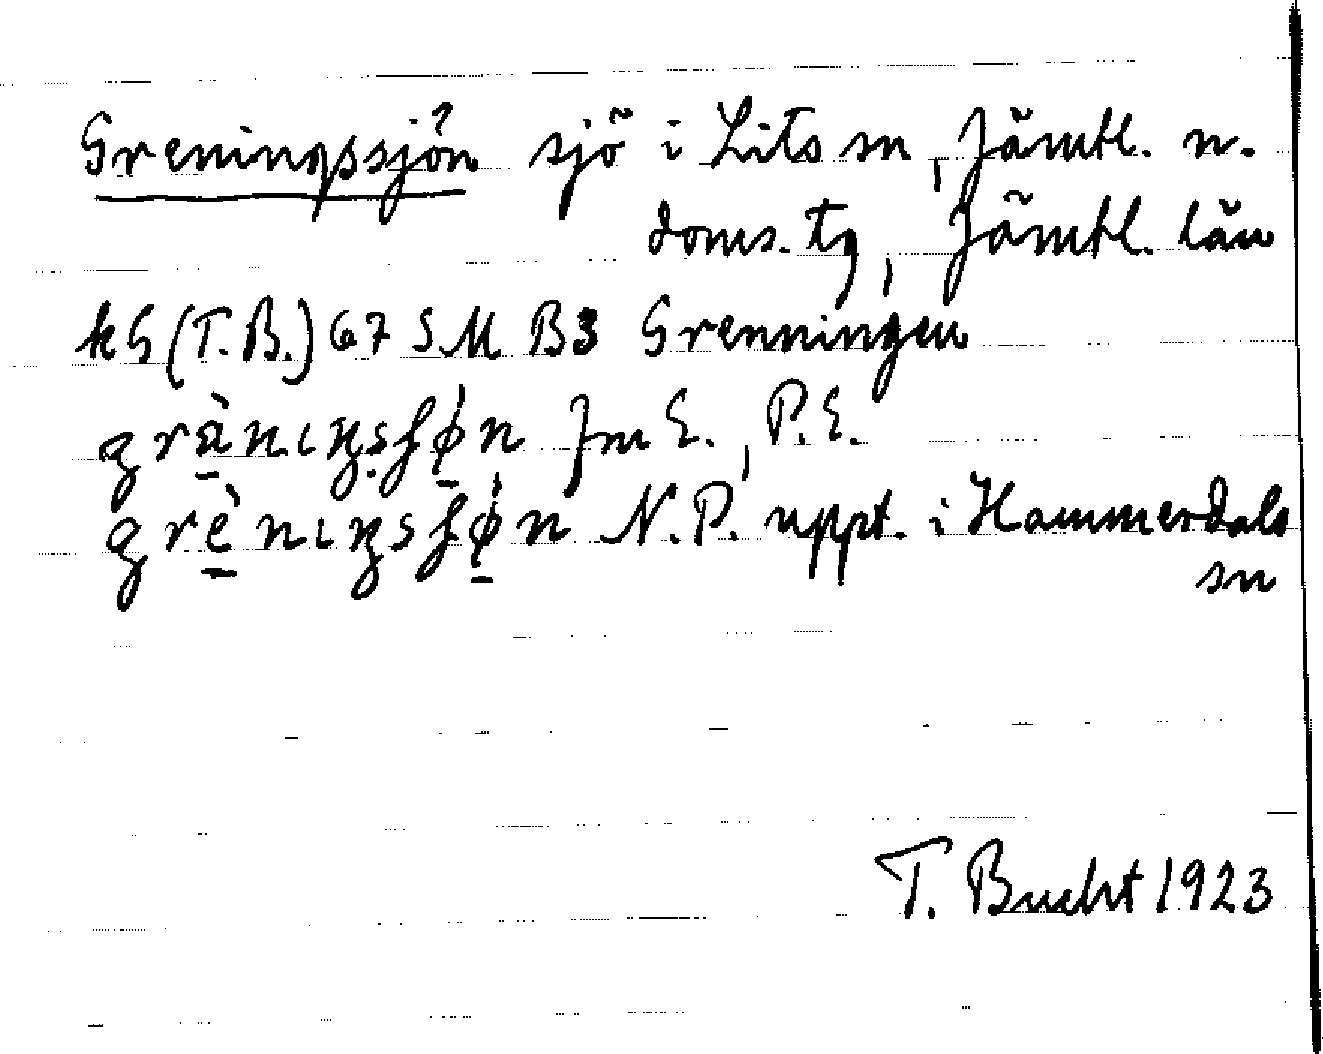 Greningssjön sjö i Lits sn, Jämtl. n.
doms. tg, Jämtl. län
kG (T.B.) 67 SM B3 Grenningen
grä̀nıŋsʃø̀n Jm E., P.E.
grènıŋsʃø̀n N.P. uppt. i Hammerdals
sn
T. Bucht 1923